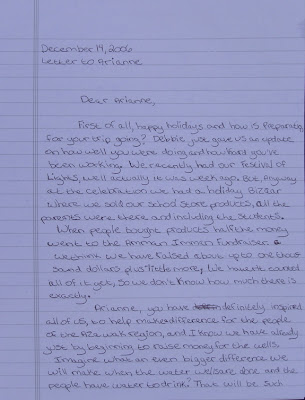 December 14, 2006
Letter to Arianne
Dear Arianne,
First of all, happy holidays and how is preparation
for your trip going? Debbie just gave us an update
on how well you were doing and how hard you've
been working. We recently had our Festival of
Lights, well actually it was week ago. But, Anyway
at the celebration we had a holiday Bizzar
where we sold our school store products, all the
parents were there and including the students.
When people bought products half the money
went to the Amman Imman Fundraiser.
We think we have raised above up to one thou-
sand dollars plus little more, we haven't counted
all of it yet, so we don't know how much there is
exactly.
Arianne, you have definitely inspired
all of us, to help make difference for the people
of the Azawak region, and I know we have already
just by beginning to raise money for the wells.
Imagine what an even bigger difference we
will make when the water wells are done and the
people have water to drink! That will be such